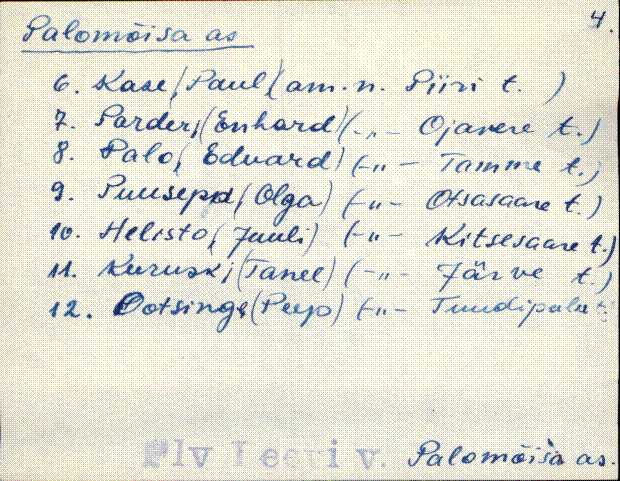 Palomõisa as
4.
6. Kase, (Paul) (am. n. Piiri t. )
7. Parder, (Enhard) (-„- Ojavere t.)
8. Palo, Eduard) (-„- Tamme t.)
9. Puusepp, (Olga) (-„- Otsasaare t.)
10. Helisto, (Juuli) (-„- Kitsesaare t.)
11. Kurusk, (Tanel) (-„- Järve t.)
12. Ootsing, (Peep) (-„- Tuudipalu t.
Plv Leevi v. Palomõisa as.